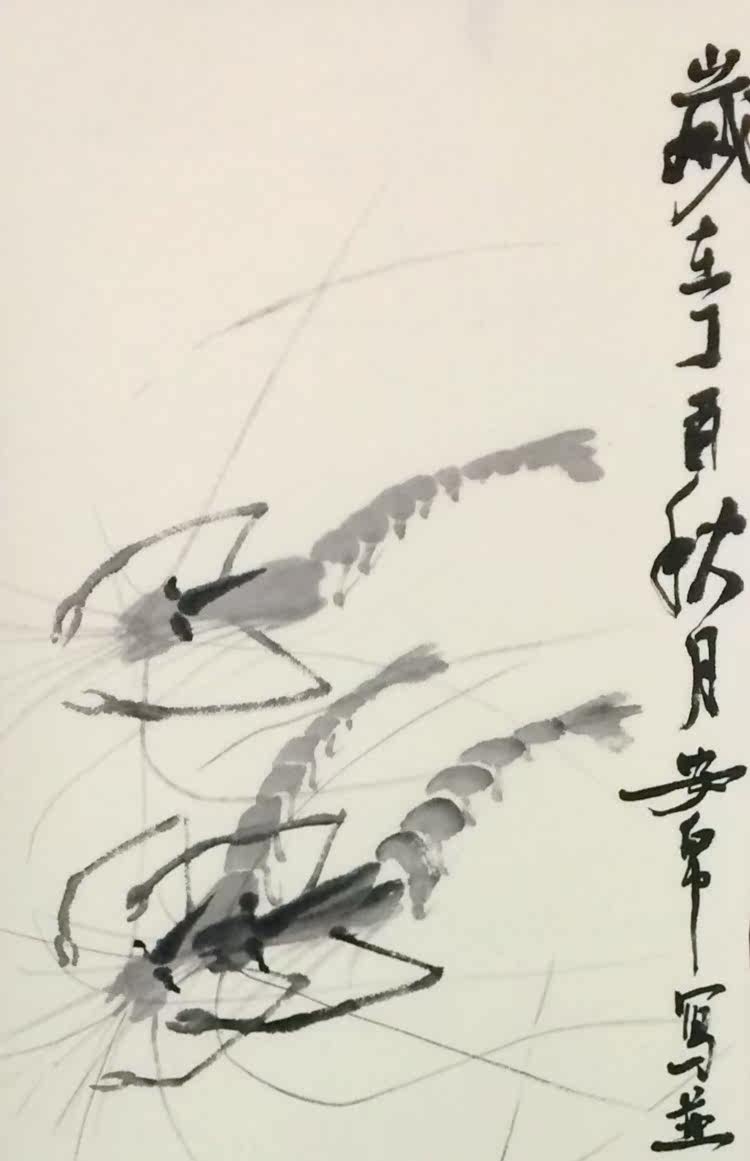 歲在丁酉秋月安帛写並